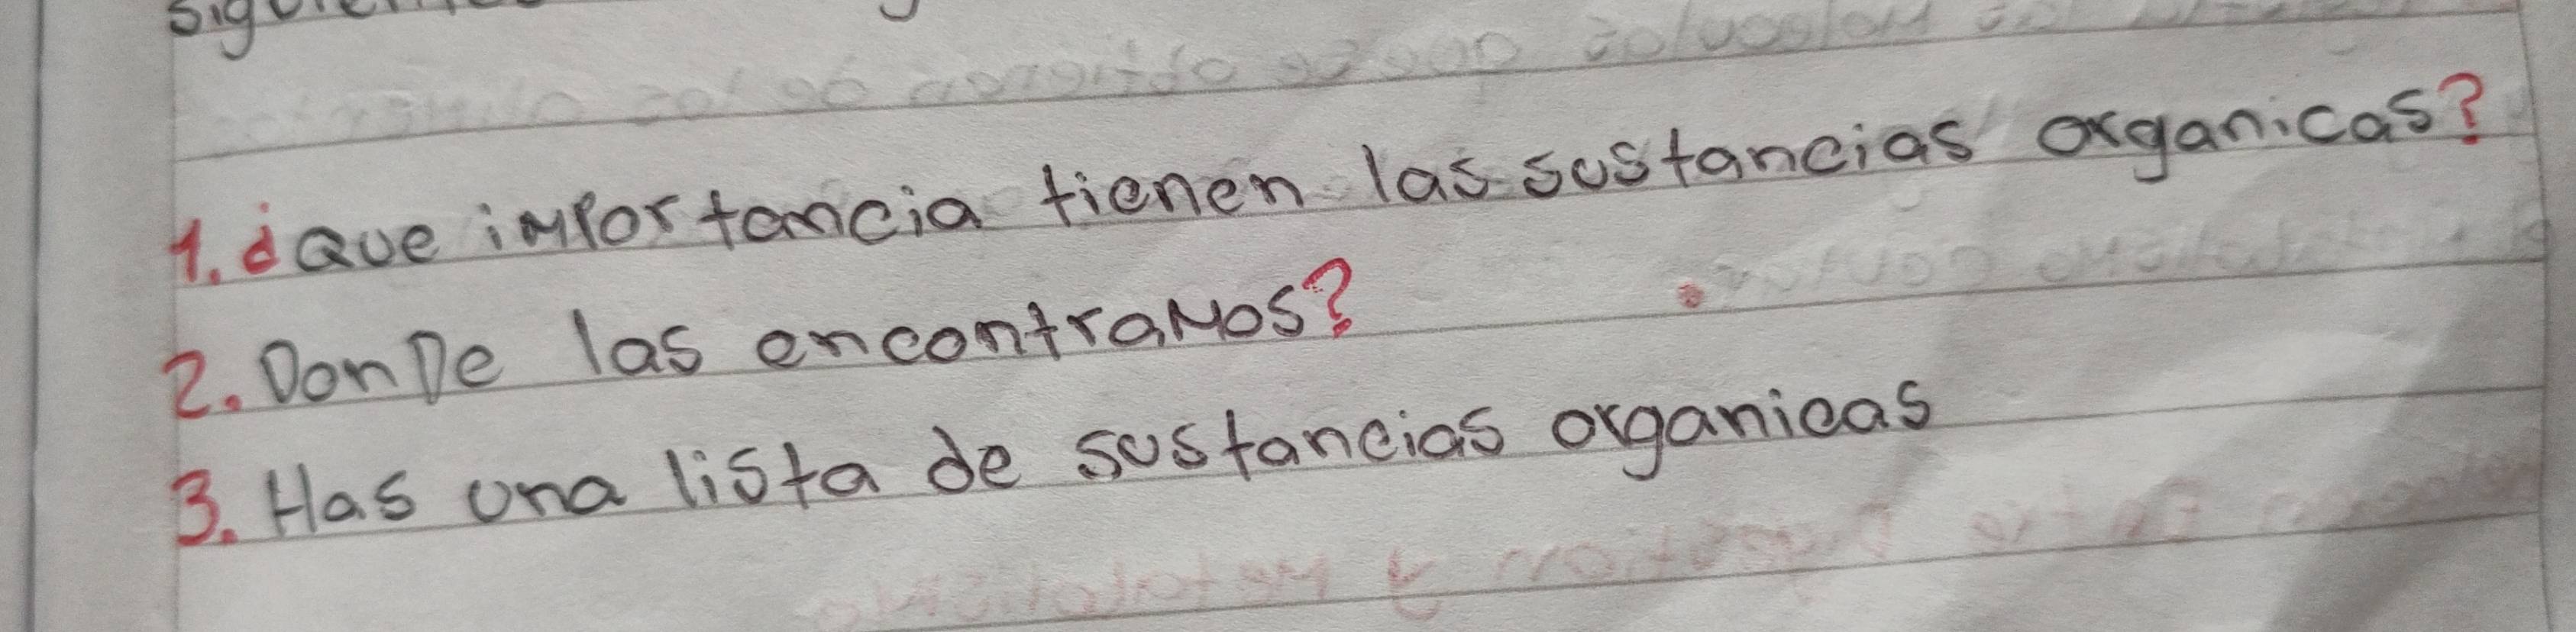 1. ¿Que importancia tienen las sustancias organicas?
2. Donde las encontramos?
3. Has una lista de sustancias organicas